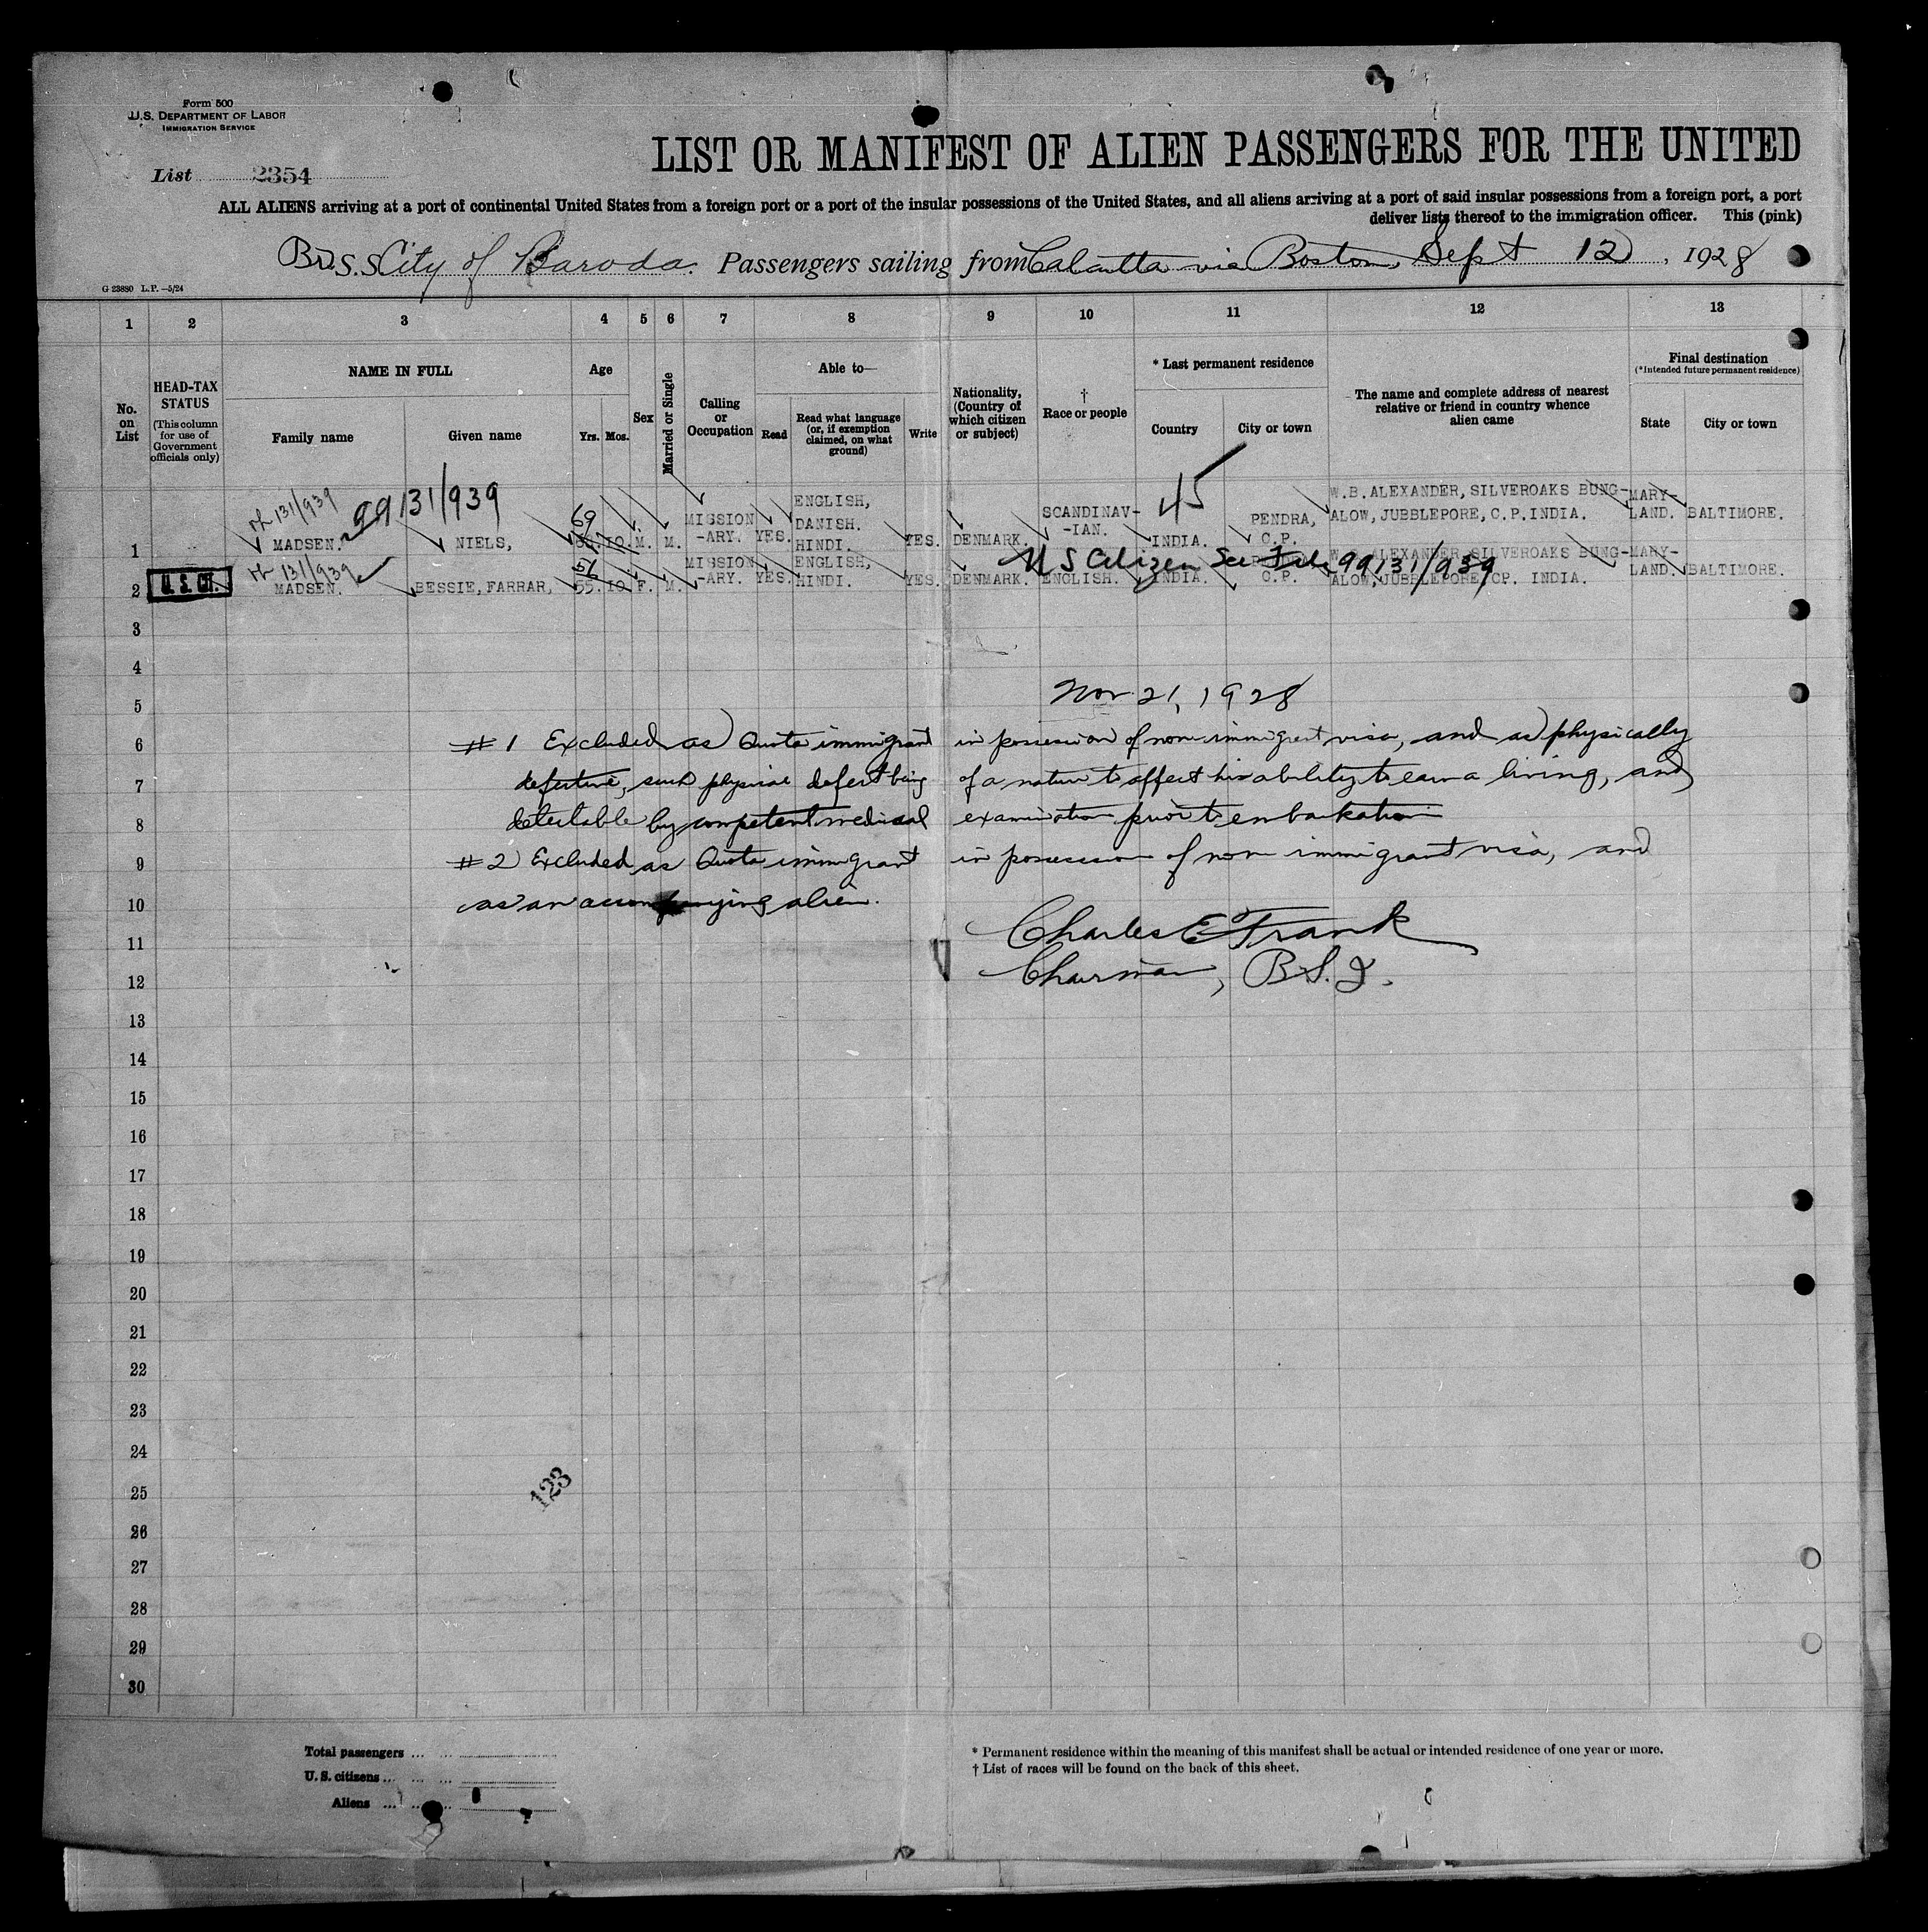 Form 500
U.S. DEPARTMENT OF LABOR
IMMIGRATION SERVICE
List 2354
LIST OR MANIFEST OF ALIEN PASSENGERS FOR THE UNITED
ALL ALIENS arriving at a port of continental United States from a foreign port or a port of the insular possessions of the United States, and all aliens arriving at a port of said insular possessions from a foreign port, a port
deliver lists thereof to the immigration officer. This (pink)
Br. S.S. City of Baroda. Passengers sailing from Calcutta via Boston, Sept 12, 1928
G 23880 L.P. —5/24
1 2 3 4 5 6 7 8 9 10 11 12 13
No. on List
HEAD-TAX STATUS
(This column for use of Government officials only)
NAME IN FULL
Family name Given name
Age
Yrs. Mos.
Sex
Married or Single
Calling or Occupation
Able to—
Read
Read what language (or, if exemption claimed, on what ground)
Write
Nationality, (Country of which citizen or subject)
† Race or people
* Last permanent residence
Country City or town
The name and complete address of nearest relative or friend in country whence alien came
Final destination
(*Intended future permanent residence)
State City or town
131/939 99131/939
1 MADSEN. NIELS, 69 10. M. M. MISSION-ARY. YES. ENGLISH, DANISH. HINDI. YES. DENMARK. SCANDINAV--IAN. INDIA. 45 PENDRA, C.P. W.B. ALEXANDER, SILVEROAKS BUNG-ALOW, JUBBLEPORE, C.P. INDIA. MARY-LAND. BALTIMORE.
131/939
U S Citizen See File 99131/939
2 U. S. CIT. MADSEN. BESSIE, FARRAR, 56 55. 10. F. M. MISSION-ARY. YES. ENGLISH, HINDI. YES. DENMARK. ENGLISH. INDIA. C.P. W. ALEXANDER, SILVEROAKS BUNG-ALOW, JUBBLEPORE, CP. INDIA. MARY-LAND. BALTIMORE.
3
4
5 Nov. 21, 1928
6 #1 Excluded as Quota immigrant in possession of non-immigrant visa, and as physically
7 defective, such physical defect being of a nature to affect his ability to earn a living, and
8 detectable by competent medical examination prior to embarkation
9 #2 Excluded as Quota immigrant in possession of non immigrant visa, and
10 as an accompanying alien.
11 Charles E Frank
12 Chairman, B.S.I.
13
14
15
16
17
18
19
20
21
22
23
24
25 123
26
27
28
29
30
Total passengers
U. S. citizens
Aliens
* Permanent residence within the meaning of this manifest shall be actual or intended residence of one year or more.
† List of races will be found on the back of this sheet.